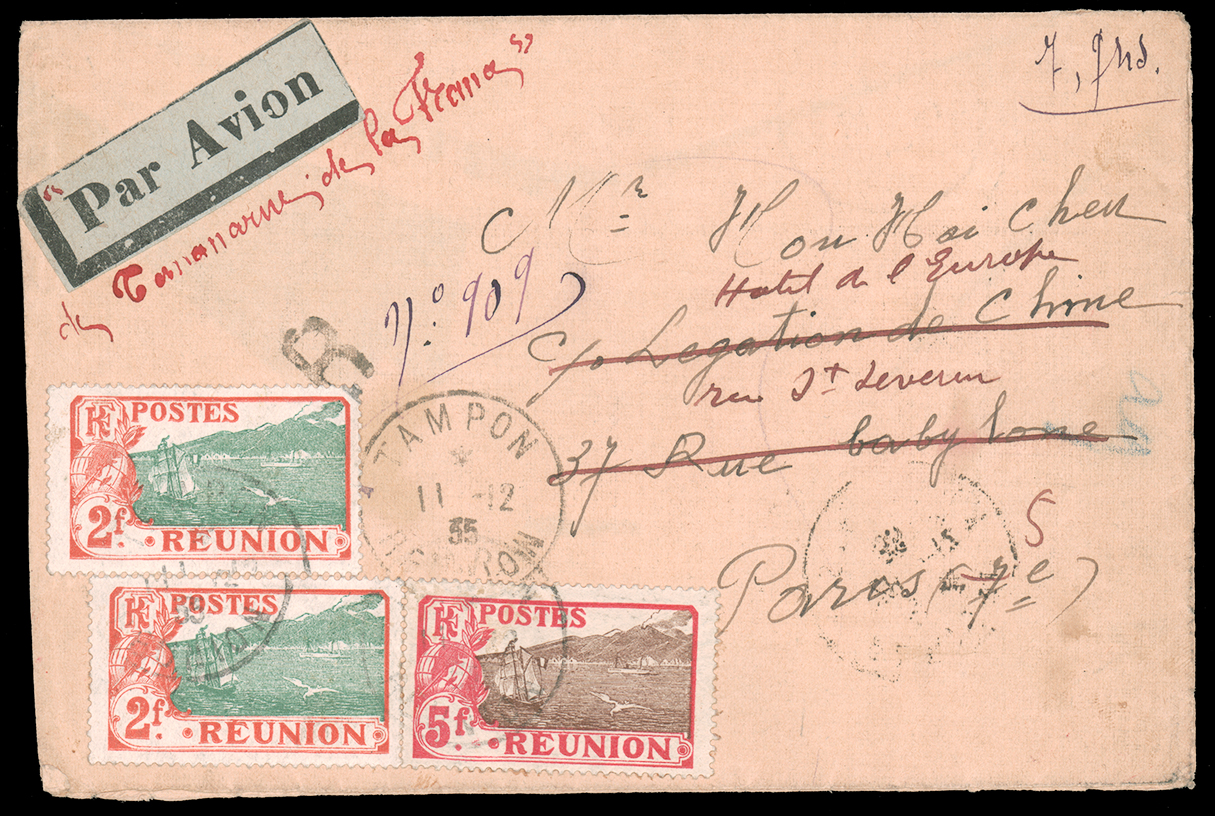 7, grs.
"Par Avion
de Tananarive de la France"
R
N.° 909
Mr Hou Hoi Chen
Hotel de l'Europe
c/o Legation de Chine
rue St Severin
37 Rue babylone
5
Paris (7e)
TAMPON
11 -12
35
REUNION
RF POSTES
2f. REUNION
RF POSTES
2f. REUNION
RF POSTES
5f. REUNION